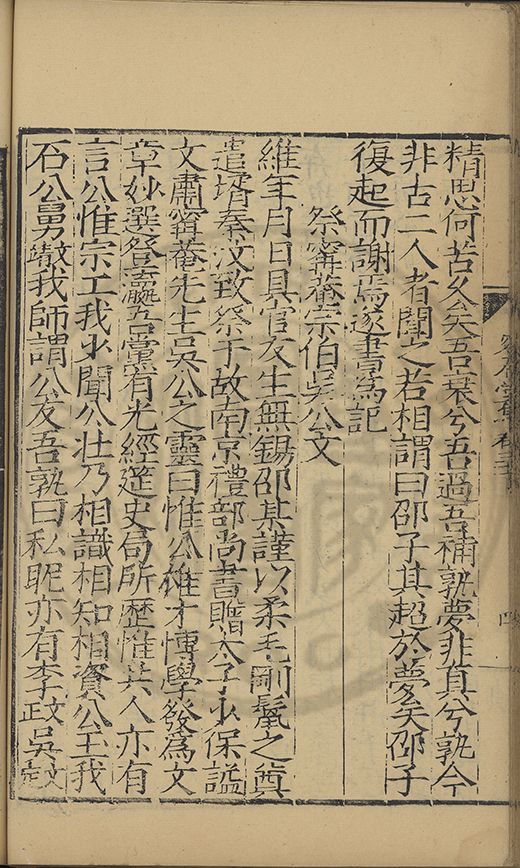 精思何苦久矣吾衰兮吾過吾補孰夢非真兮孰今
非古二人者聞之若相謂曰邵子其超於夢矣邵子
復起而謝焉遂書為記
祭寗菴宗伯吳公文
維年月日具官友生無錫邵某謹以柔毛剛鬣之奠
遣壻秦汶致祭于故南京禮部尚書贈太子少保謚
文肅寗菴先生吳公之靈曰惟公雄才博學發為文
章妙選登瀛吾黨有光經筵史局所歷惟其人亦有
言公惟宗工我少聞公壯乃相識相知相資公玉我
石公舅
我師謂公友吾孰曰私昵亦有李政吳
春堂